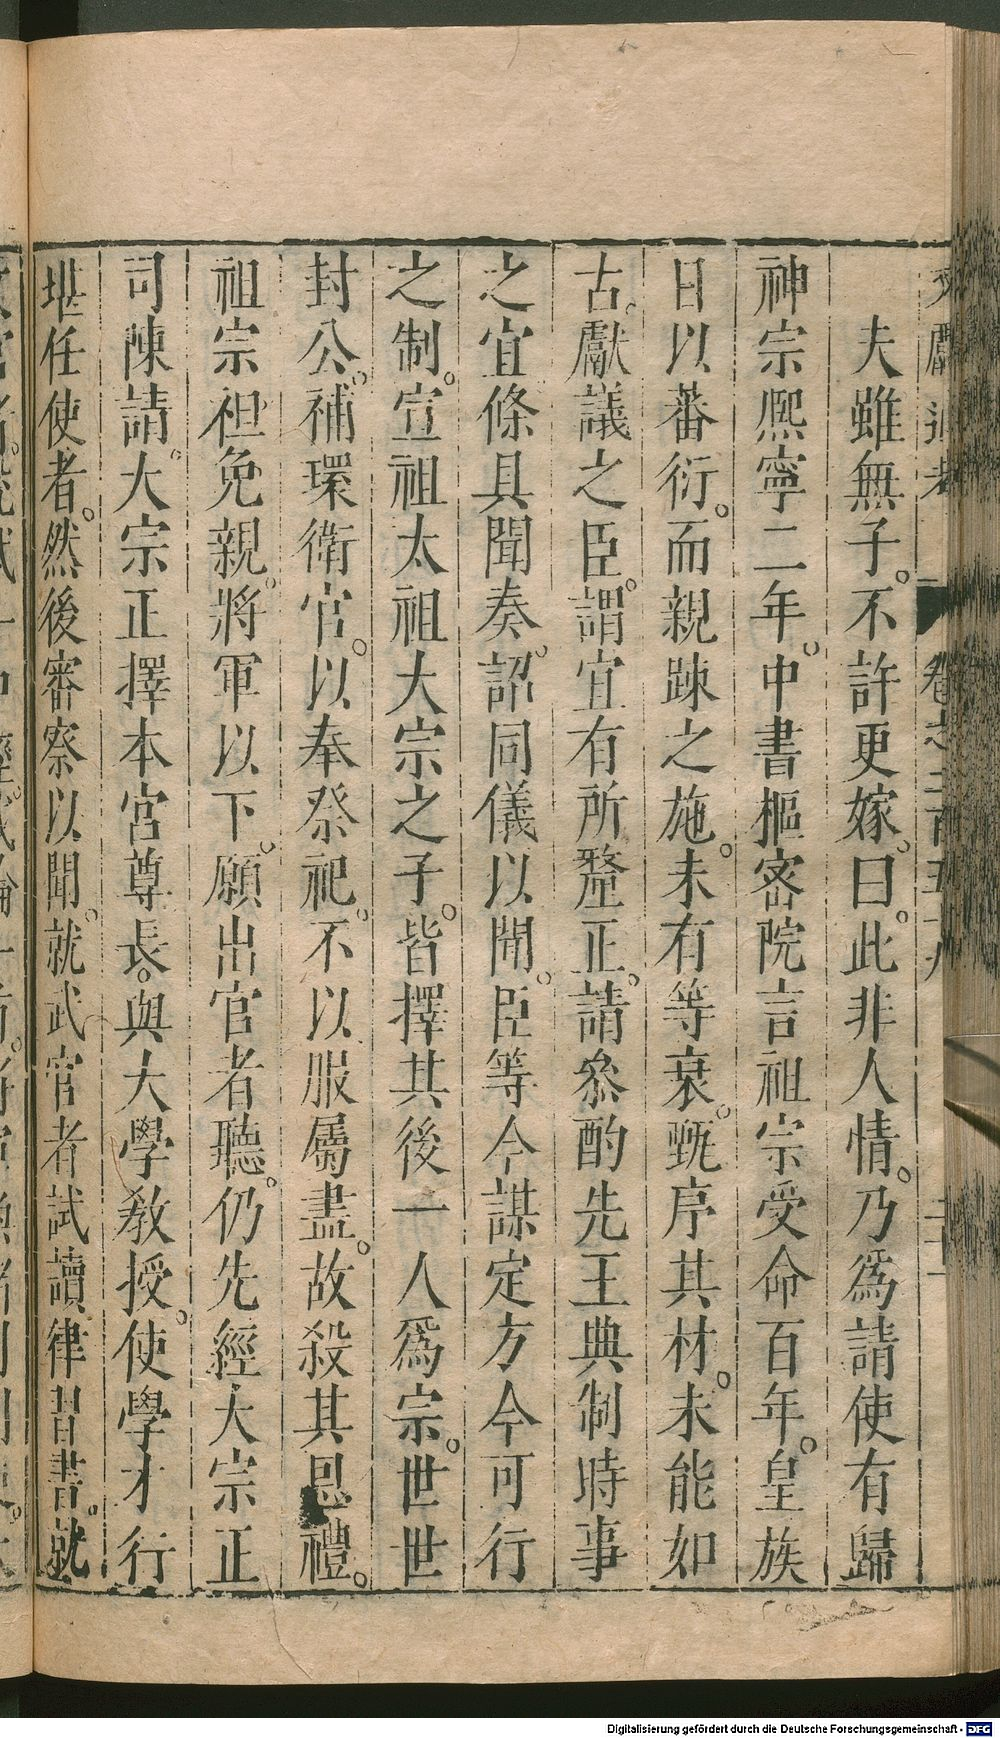 夫雖無子。不許更嫁。曰。此非人情。乃爲請使有歸
神宗熈寧二年。中書樞密院言祖宗受命百年。皇族
日以蕃衍。而親疎之施。未有等衰。甄序其材。未能如
古。獻議之臣。謂宜有所釐正。請叅酌先王典制時事
之宜條具聞奏。詔同儀以聞。臣等今謀定方今可行
之制。宣祖太祖大宗之子。皆擇其後一人爲宗。世世
封公。補環衛官。以奉祭祀。不以服屬盡。故殺其恩禮。
祖宗袒免親。將軍以下。願出官者聽。仍先經大宗正
司陳請。大宗正擇本宮尊長。與大學敎授。使學才行
堪任使者。然後審察以聞。就武官者試讀律習書。就
Digitalisierung gefördert durch die Deutsche Forschungsgemeinschaft - DFG